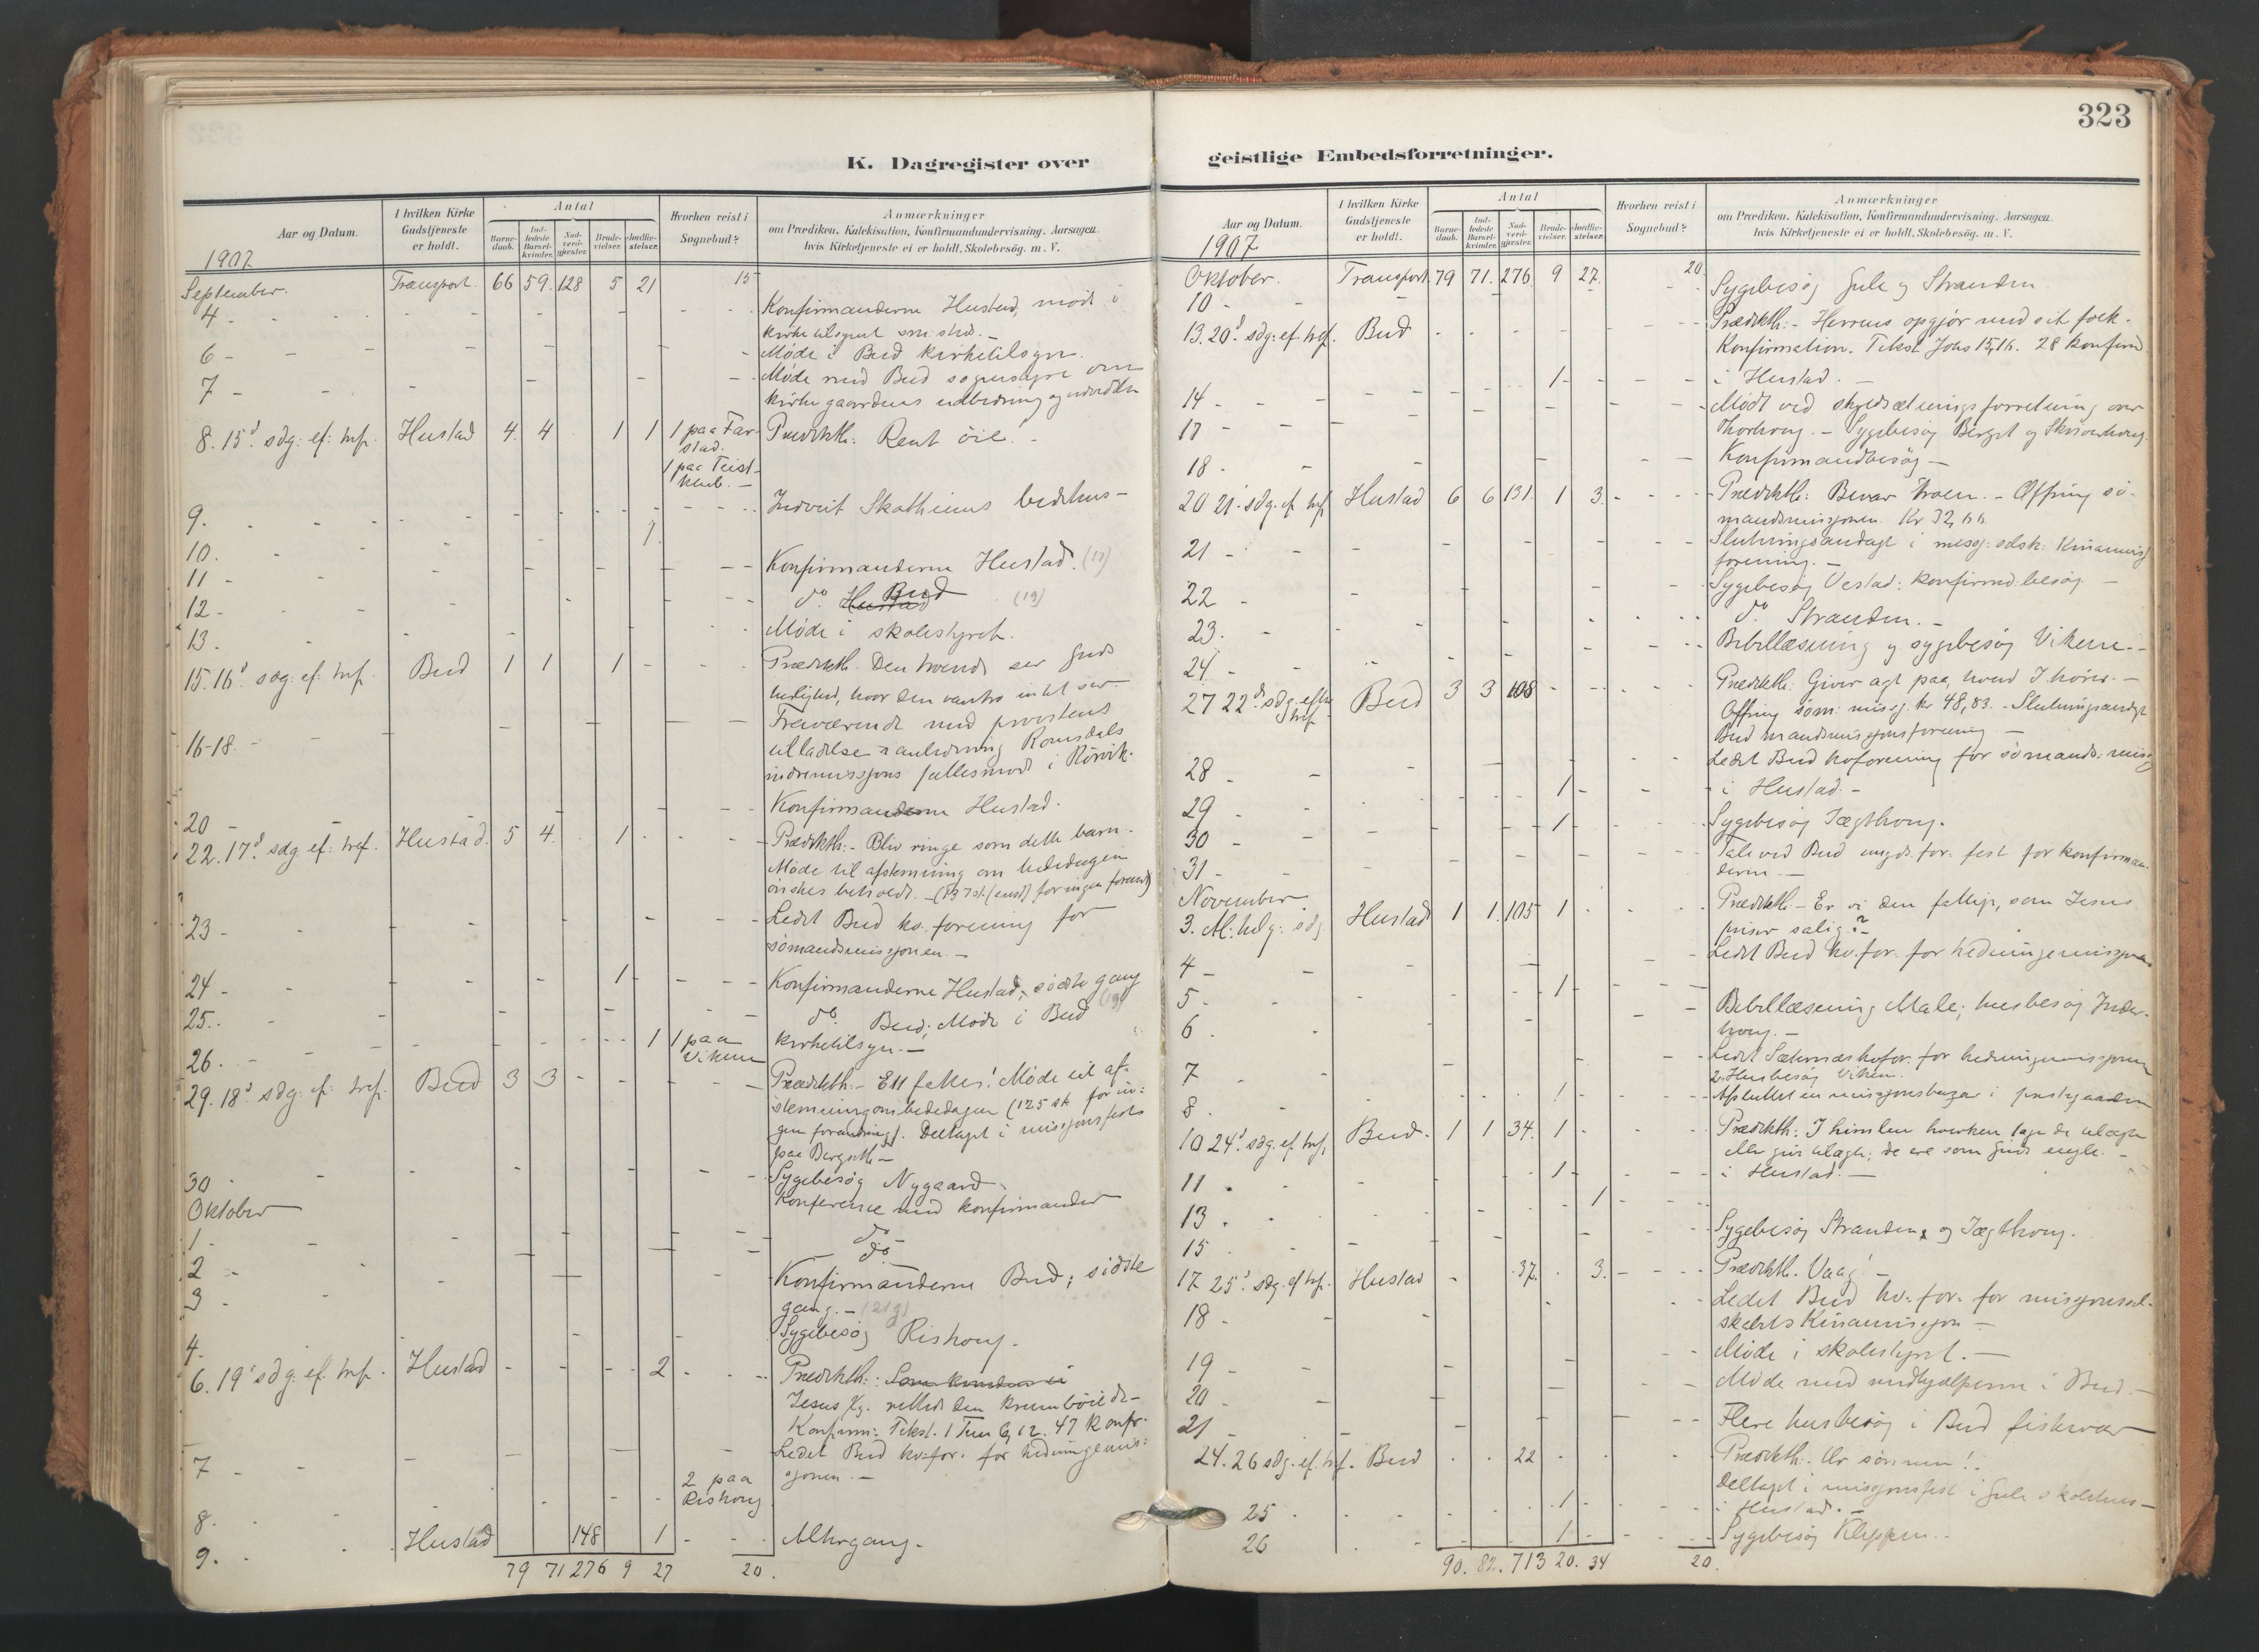 323
K. Dagregister over
Aar og Datum.
I hvilken Kirke Gudstjeneste er holdt.
Antal
Barnedaab.
Indledede Barselkvinder.
Nadverdgjæster.
Brudevielser.
Jordfæstelser.
Hvorhen reist i Sognebud?
Anmærkninger
om Prædiken, Katekisation, Konfirmandundervisning, Aarsagen,
hvis Kirketjeneste ei er holdt, Skolebesög. m. V.
1907
September. Transport. 66 59. 128 5 21 15
4 - Konfirmanderne Hustad, møde i
kirketilsynet smstd. -
6 - Møde i Bud kirketilsyn.
7 - Møde med Bud sognestyre om
kirkegaardens udbedring og
8. 15d. sdg: ef: tref. Hustad 4. 4 1 1 1 paa Far- Prædikth: Rent öie! -
stad.
1 paa Teist-
klub. -
9. Indviet Skotheims bedehus -
10. 1
11 - Konfirmanderne Hustad. (17)
12 - do. Hustad Bud (19)
13. Møde i skolestyret.
15. 16d. sdg. ef: tref. Bud 1 1 1 - Prædikth. Den troende ser Guds
herlighed, hvor den vantro intet ser.
16-18. - Fraværende med provstens
tilladelse i anledning Romsdals
indremissjons fællesmøde i Rörvik.
20 - Konfirmanderne Hustad.
22. 17d. sdg ef: tref. Hustad. 5 4. 1 - Prædikth: - Bliv ringe som dette barn.
Møde til afstemning om bededagen
önskes beholdt. - (137 st. (enst) for ingen forandr)
23 - Ledet Bud kv. forening for
sömandsmissjonen. -
24 - 1 Konfirmanderne Hustad, sidste gang
25. - do. Bud; Møde i Bud (19)
26. - 1 1 paa kirketilsyn. -
Vikene
29. 18d sdg: ef: tref. Bud 3 3 Prædikth: - Ett fattes! Møde til af-
stemning om bededagen (125 st. for in-
gen forandring). Deltaget i missjonsfest
paa Bergseth -
30 - Sygebesög Nygaard.
Oktober Konference med konfirmander
1 - do
2 - do
3 - Konfirmanderne Bud; sidste
gang. - (21g)
4. Sygebesög Rishoug.
6. 19d sdg: ef: tref. Hustad 2 Prædikth:
Jesus Kg. rettede den krumböiede -
Konfirm: Tekst. 1 Tim 6,12. 47 konfr.
7 - Ledet Bud kv:for. for hedningemis-
sjonen. -
8. 2 paa
Rishoug
9. Hustad 148 1 Altergang.
79 71 276 9 27 20.
geistlige Embedsforretninger.
Aar og Datum.
I hvilken Kirke Gudstjeneste er holdt.
Antal
Barnedaab.
Indledede Barselkvinder.
Nadverdgjæster.
Brudevielser.
Jordfæstelser.
Hvorhen reist i Sognebud?
Anmærkninger
om Prædiken, Katekisation, Konfirmandundervisning, Aarsagen,
hvis Kirketjeneste ei er holdt, Skolebesög. m. V.
1907
Oktober. Transport. 79 71. 276 9 27. 20.
10 - Sygebesög Gule og Stranden
13. 20d. sdg: ef. tref. Bud Prædikth: - Herrens opgjør med sit folk.
Konfirmation. Tekst Johs 15,16. 28 konfirmd
14 - 1 - i Hustad. -
17 - Mødt ved skyldsætningsforretning over
Thorhoug. - Sygebesög Berget og Skvorhoug
18 - Konfirmandbesög -
20 21. sdg. ef tref Hustad 6 6 131. 1 3. Prædikth: Bevar troen. - Offring sö-
mandsmissjonen. Kr 32,66.
21 - Slutningsandagt i missj: selsk: Kinamissj
forening. -
22 - Sygebesög Vestad: konfirmd. besög -
23. - do Stranden. -
24 - Bibellæsning og sygebesög Vikene. -
27 22d. sdg. efter tref Bud 3 3 108 Prædikth: Giver agt paa, hvad I hører. -
Offring söm: missj. kr 48,83. - Slutningsandagt
Bud mandsmissjonsforening -
28 - Ledet Bud kvforening for sömands:missj
29 - 1 - i Hustad. -
30 - 1 - Sygebesög Jægthoug.
31 - Tale ved Bud ungds. for. fest for konfirman-
derne. -
November.
3. Al: helg: sdg Hustad 1 1. 105 1 Prædikth - Er vi den fattige, som Jesus
priser salig? -
4 - Ledet Bud kv. for. for hedningemissjonen
5 - 1 -
6. Bibellæsning Male; husbesög Inder-
houg. -
7 - Ledet Sæternæs kvfor. for hedningemissjonen
2. Husbesög Viken.
8. 1 Afsluttet en missjonsbazar i prestgaarden
10 24d. sdg. ef. tref. Bud. 1 1 34. 1 Prædikth: I himlen hverken tage de tilægte
eller gives tilægte; de ere som Guds engle. -
11 - 1 - i Hustad. -
13. 1
15 - Sygebesög Stranden, og Jægthoug.
17 25d. sdg. ef tref. Hustad 37. 3. Prædikth. Vaag! -
18 - Ledet Bud kv. for. for missjonssel-
skabets Kinamissjon -
19 - Møde i skolestyret. -
20 - Møde med medhjælperne i Bud. -
21 - Flere husbesög i Bud fiskevær
24. 26 sdg. ef. tref. Bud 22 Prædikth: - Ær sönnen! -
Deltaget i missjonsfest i Gule skolehus -
25 - 1 - i Hustad. -
26 1 - Sygebesög Klippen. -
90. 82. 713 20. 34 20.